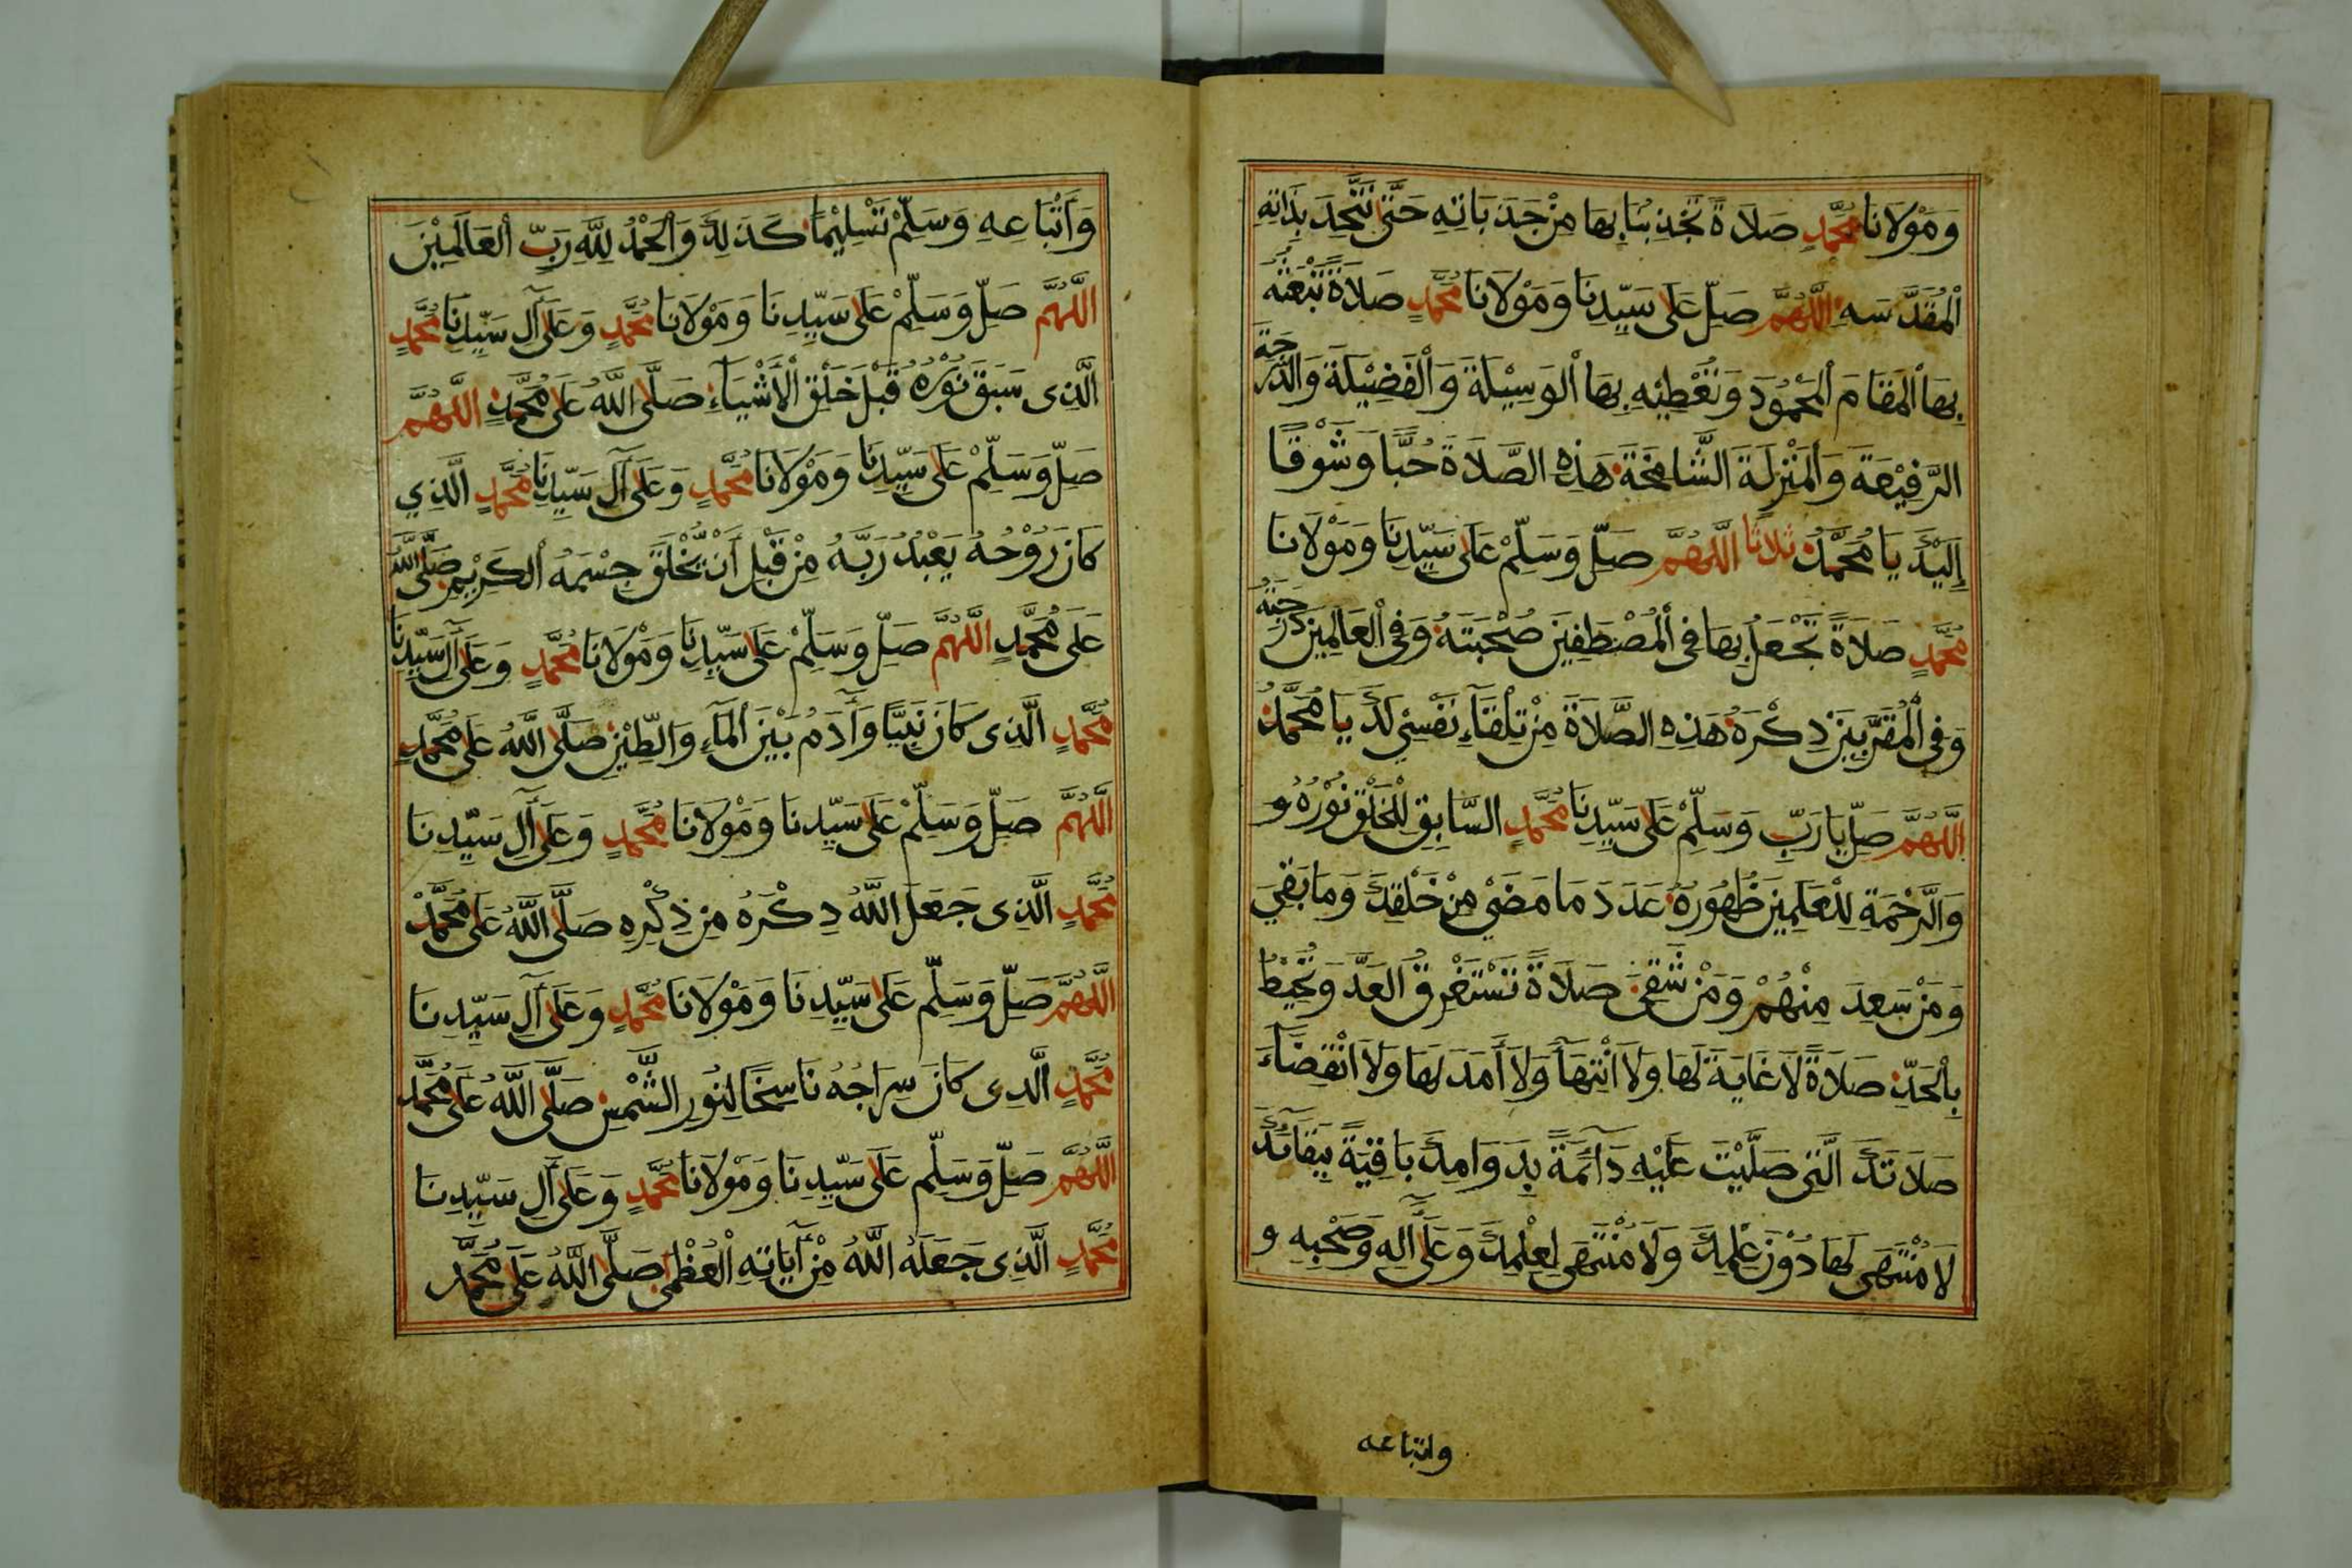 وَمَوْلَانَا مُحَمَّدٍ صَلَاةً تَجْذِبُنَا بِهَا مِنْ جَذَبَاتِهِ حَتَّى نَتَّحِدَ بِذَاتِهِ
الْمُقَدَّسَهِ اللَّهُمَّ صَلِّ عَلَى سَيِّدِنَا وَمَوْلَانَا مُحَمَّدٍ صَلَاةً تَبْعَثُهُ
بِهَا الْمَقَامَ الْمَحْمُودَ وَتُعْطِيْهِ بِهَا الْوَسِيْلَةَ وَالْفَضِيْلَةَ وَالدَّرَجَةَ
الرَّفِيْعَةَ وَالْمَنْزِلَةَ الشَّامِخَةَ هَذِهِ الصَّلَاةَ حُبًّا وَشَوْقًا
إِلَيْكَ يَا مُحَمَّدُ ثلاثا اللَّهُمَّ صَلِّ وَسَلِّمْ عَلَى سَيِّدِنَا وَمَوْلَانَا
مُحَمَّدٍ صَلَاةً تَجْعَلُ بِهَا فِي الْمُصْطَفِيْنَ صُحْبَتَهُ وَفِي الْعَالِمِيْنَ دَرَجَتَهُ
وَفِي الْمُقَرَّبِيْنَ ذِكْرَهُ هَذِهِ الصَّلَاةَ مِنْ تِلْقَاءِ نَفْسِيْ لَكَ يَا مُحَمَّدُ
اللَّهُمَّ صَلِّ يَا رَبِّ وَسَلِّمْ عَلَى سَيِّدِنَا مُحَمَّدٍ السَّابِقِ لِلْخَلْقِ نُوْرُهُ وَ
وَالرَّحْمَةِ لِلْعَلَمِيْنَ ظُهُورُهُ عَدَدَ مَا مَضَيْ مِنْ خَلْقِكَ وَمَا بَقِيَ
وَمَنْ سَعِدَ مِنْهُمْ وَمَنْ شَقِيَ صَلَاةً تَسْتَغْرِقُ الْعَدَّ وَتُحِيْطُ
بِالْحَدِّ صَلَاةً لَا غَايَةَ لَهَا وَلَا انْتِهَآ وَلَا أَمَدَ لَهَا وَلَا انْقِضَآءَ
صَلَاتَكَ الَّتِى صَلَّيْتَ عَلَيْهِ دَآئِمَةً بِدَوَامِكَ بَاقِيَةً بِبَقَآئِكَ
لَا مُنْتَهَى لَهَا دُوْنَ عِلْمِكَ وَلَا مُنْتَهَى لِعِلْمِكَ وَعَلَى آلِهِ وَصَحْبِهِ و
واتباعه
وَأَتْبَاعِهِ وَسَلِّمْ تَسْلِيْمًا كَذَلِكَ وَالْحَمْدُ لِلَّهِ رَبِّ الْعَالَمِيْنَ
اللَّهُمَّ صَلِّ وَسَلِّمْ عَلَى سَيِّدِنَا وَمَوْلَانَا مُحَمَّدٍ وَعَلَى آلِ سَيِّدِنَا مُحَمَّدٍ
الَّذِى سَبَقَ نُوْرُهُ قَبْلَ خَلْقِ الْأَشْيَآءِ صَلَّى اللَّهُ عَلَى مُحَمَّدٍ اللَّهُمَّ
صَلِّ وَسَلِّمْ عَلَى سَيِّدِنَا وَمَوْلَانَا مُحَمَّدٍ وَعَلَى آلِ سَيِّدِنَا مُحَمَّدٍ الَّذِي
كَانَ رُوْحُهُ يَعْبُدُ رَبَّهُ مِنْ قَبْلِ أَنْ يُّخْلَقَ جِسْمُهُ الْكَرِيْمِ صَلَّى اللَّهُ
عَلَى مُحَمَّدٍ اللَّهُمَّ صَلِّ وَسَلِّمْ عَلَى سَيِّدِنَا وَمَوْلَانَا مُحَمَّدٍ وَعَلَى آلِ سَيِّدِنَا
مُحَمَّدٍ الَّذِى كَانَ نَبِيًّا وَآدَمُ بَيْنَ الْمَآءِ وَالطِّيْنِ صَلَّى اللَّهُ عَلَى مُحَمَّدٍ
اللَّهُمَّ صَلِّ وَسَلِّمْ عَلَى سَيِّدِنَا وَمَوْلَانَا مُحَمَّدٍ وَعَلَى آلِ سَيِّدِنَا
مُحَمَّدٍ الَّذِى جَعَلَ اللَّهُ ذِكْرَهُ مِنْ ذِكْرِهِ صَلَّى اللَّهُ عَلَى مُحَمَّدٍ
اللَّهُمَّ صَلِّ وَسَلِّمْ عَلَى سَيِّدِنَا وَمَوْلَانَا مُحَمَّدٍ وَعَلَى آلِ سَيِّدِنَا
مُحَمَّدٍ الَّذِى كَانَ سِرَاجُهُ نَاسِخًا لِنُورِ الشَّمْسِ صَلَّى اللَّهُ عَلَى مُحَمَّدٍ
اللَّهُمَّ صَلِّ وَسَلِّمْ عَلَى سَيِّدِنَا وَمَوْلَانَا مُحَمَّدٍ وَعَلَى آلِ سَيِّدِنَا
مُحَمَّدٍ الَّذِى جَعَلَهُ اللَّهُ مِنْ آيَاتِهِ الْعُظْمَى صَلَّى اللَّهُ عَلَى مُحَمَّدٍ